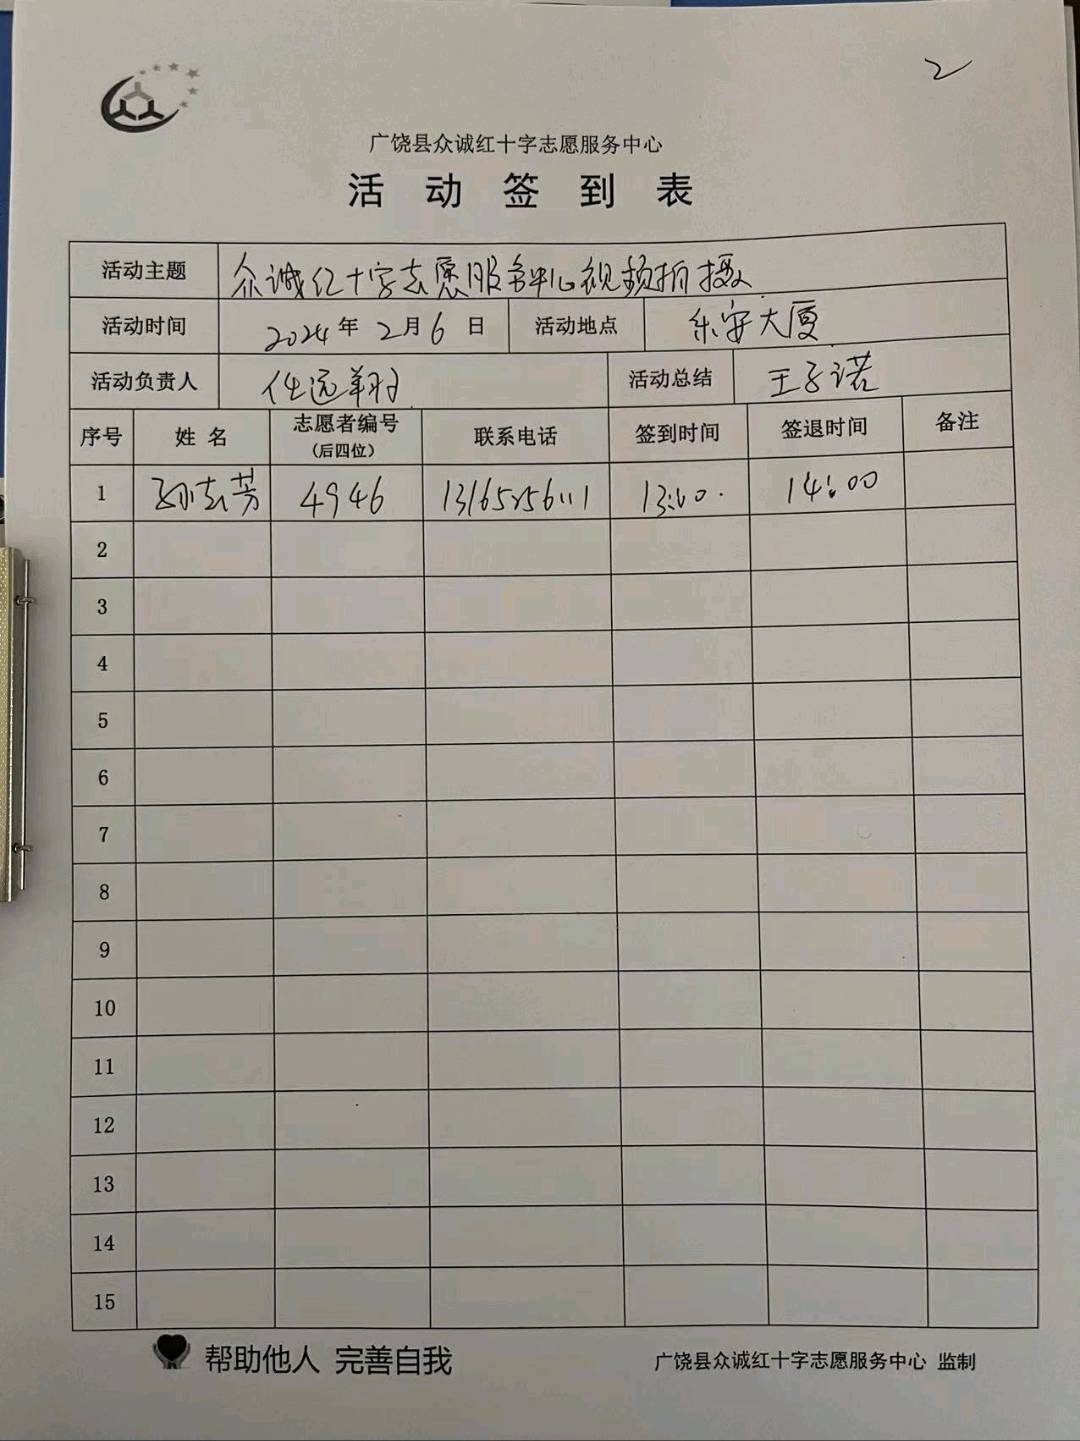 2
广饶县众诚红十字志愿服务中心
活动签到表
活动主题 众诚红十字志愿服务中心视频拍摄
活动时间 2024年2月6日 活动地点 乐安大厦
活动负责人 任远翔 活动总结 王子诺
序号 姓名 志愿者编号 (后四位) 联系电话 签到时间 签退时间 备注
1 孙志芳 4946 13165256111 13:00. 14:00
2
3
4
5
6
7
8
9
10
11
12
13
14
15
帮助他人 完善自我 广饶县众诚红十字志愿服务中心 监制